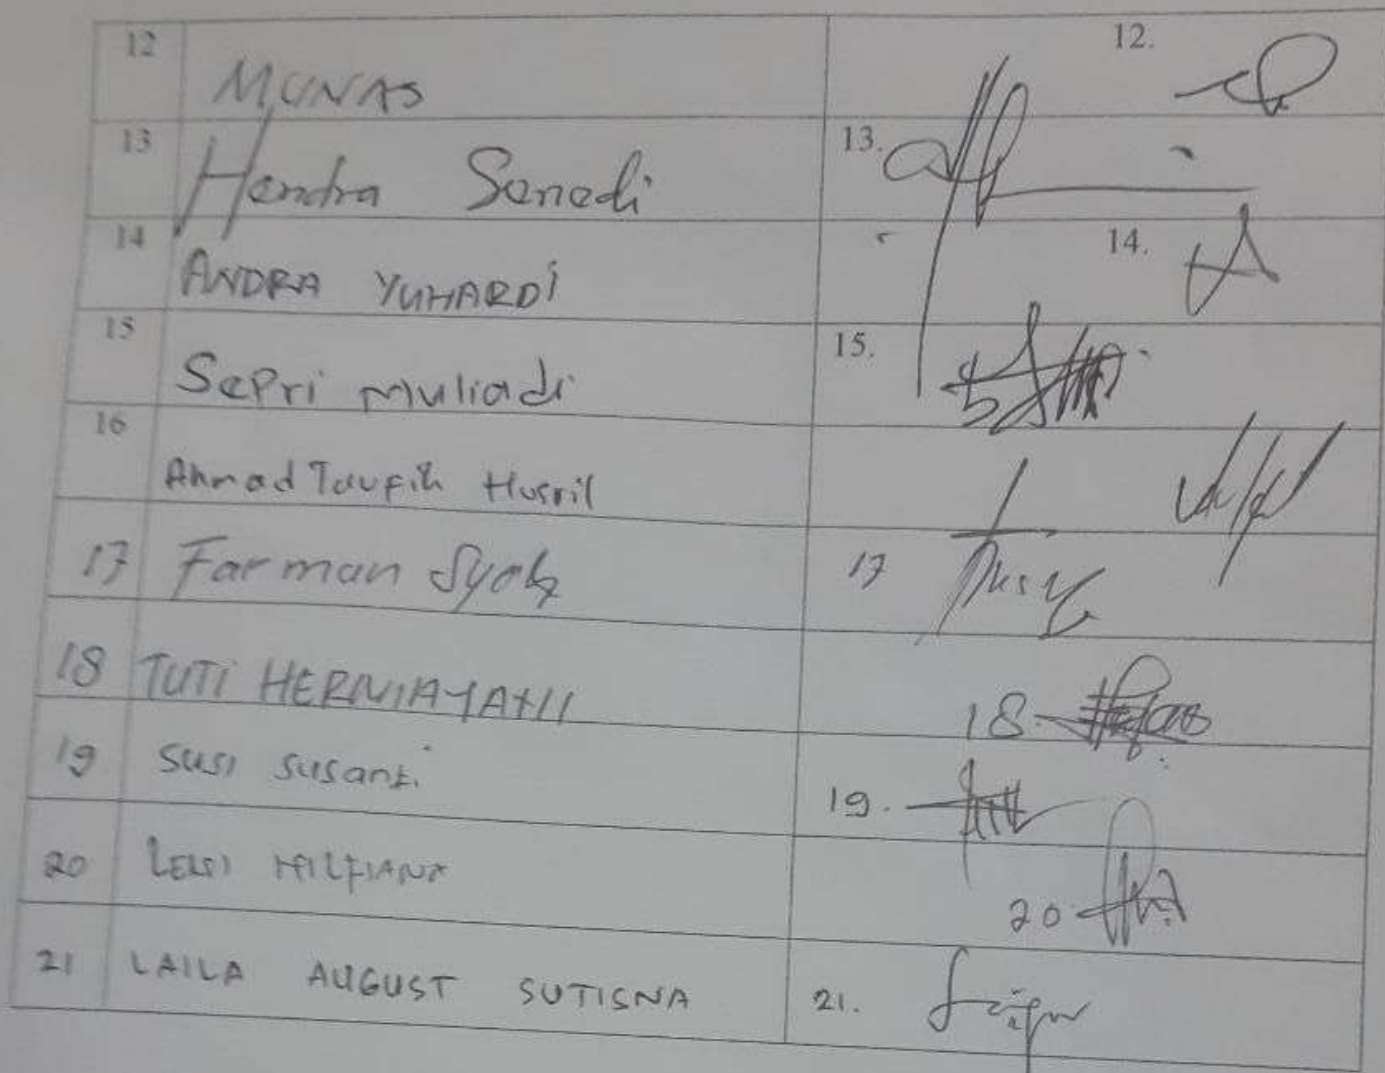 12 MUNAS 12.
13 Hendra Sanedi 13.
14 ANDRA YUHARDI 14.
15 Sepri Muliadi 15.
16 Ahmad Taufik Husril
17 Farman Syah 17
18 TUTI HERNIAYATI 18
19 Susi Susanti 19.
20 HILFIANA 20
21 LAILA AUGUST SUTISNA 21.